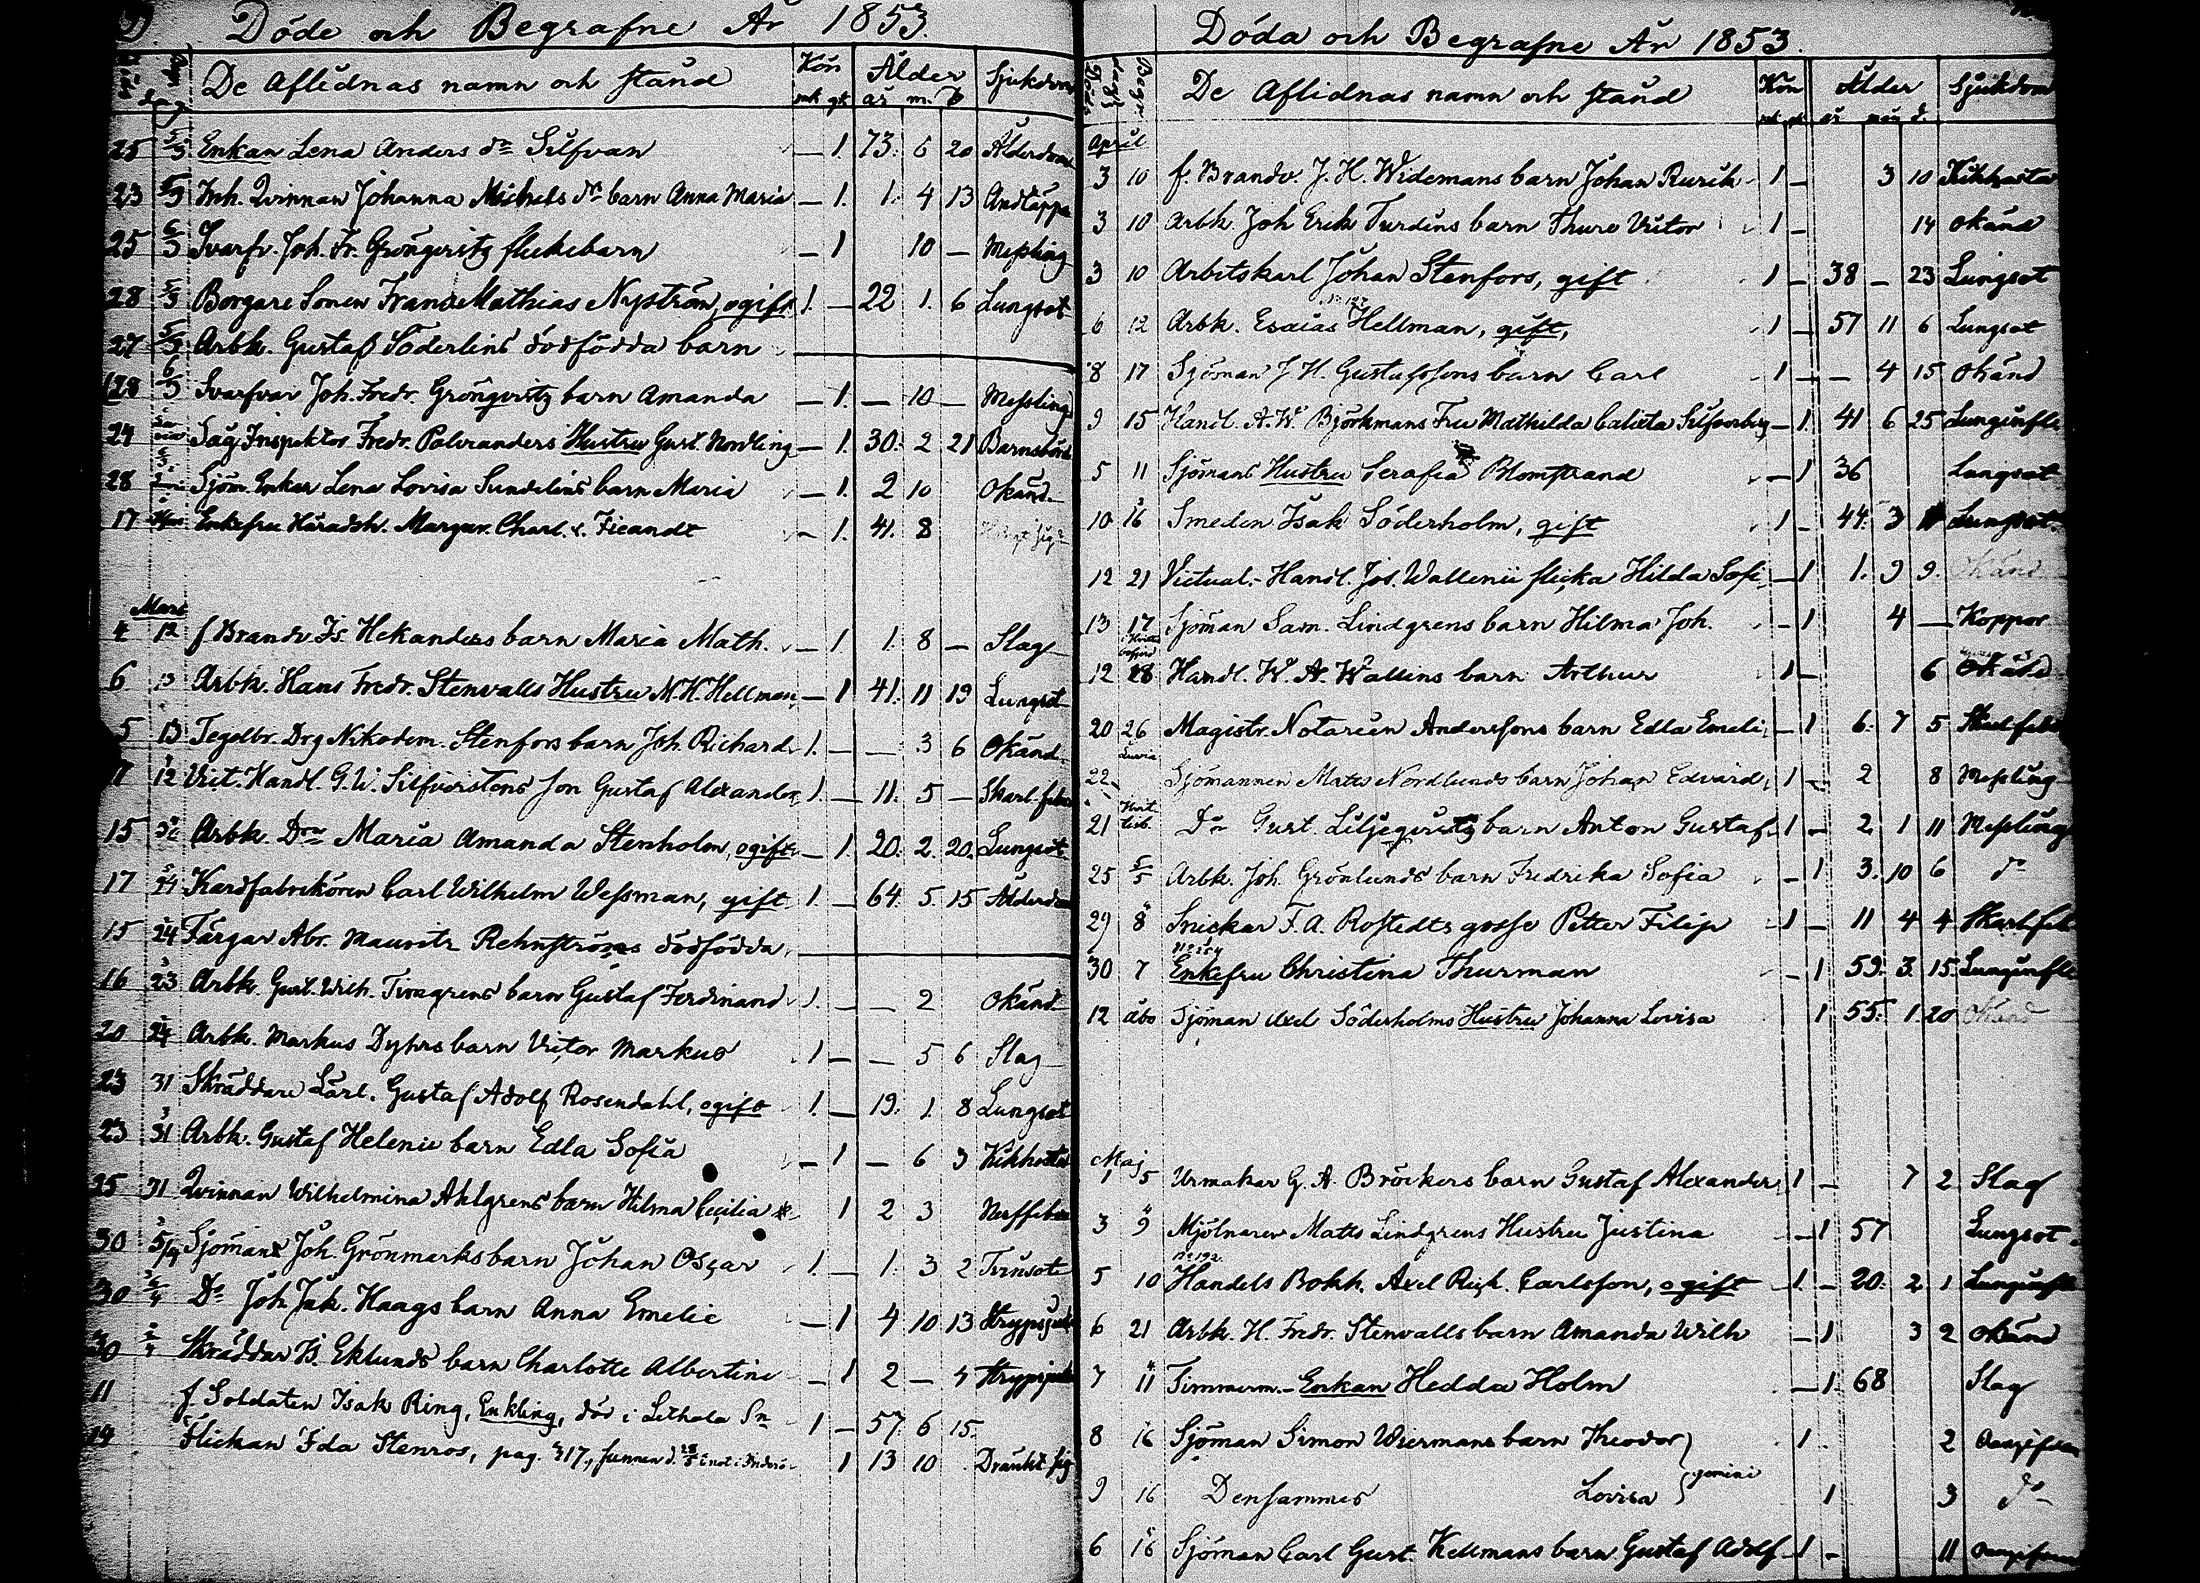 Döde och Begrafne År 1853.
De Aflidnas namn och stånd Kön Ålder Sjukdom
mk qk år m. d
25 5/3 Enkan Lena Anders dr Silfvan — 1. 73. 6 20 Ålderdom
23 Inh. Qvinnan Johanna Michels dr barn Anna Maria — 1. 1. 4 13 Andtäppa
25 Svarfv. Joh. Fr. Gröngvitz flickebarn — 1 10 — Messling
28 Borgare Sonen Frans Mathias Nyström, ogift 1. — 22 1. 6 Lungsot
27 Arbk. Gustaf Söderlins dödfödda barn
28 6/3 Svarfvar Joh. Fredr. Gröngvitz barn Amanda — 1. — 10 — Messling
24 Såg Inspektor Fredr. Paleranders Hustru Gust. Nordling — 1. 30. 2 21 Barnsbörd
28 Sjöm. Enkan Lena Lovisa Sundelins barn Maria — 1. 2 10 Okänd
17 Enkefru Häradsh. Margar. Charl. v. Fieandt — 1. 41. 8
Mars
4 12 f Brandv Is. Hekanders barn Maria Math. — 1 1. 8 — Slag
6 13 Arbk. Hans Fredr. Stenvalls Hustru M. H. Hellman — 1 41. 11 19 Lungsot
5 13 Tegelbr. Drg Nikodem. Stenfors barn Joh. Richard 1. — — 3 6 Okänd
12 Vict. Handl. G. W. Silfverstens son Gustaf Alexander 1. — 11. 5 — Skarl. feber
15 Arbk. Dr Maria Amanda Stenholm, ogift — 1. 20. 2. 20. Lungsot
17 Kardfabrikören Carl Wilhelm Wessman, gift 1. — 64. 5. 15 Ålderdom
15 24 Färgar Abr. Mauritz Rehnströms dödfödda
16 23 Arbk. Gust. Wilh. Tivagrens barn Gustaf Ferdinand 1. — — 2 Okänd
20 24 Arbk. Markus Dyhrs barn Victor Markus 1 — — 5 6 Slag
23 31 Skräddare Lärl. Gustaf Adolf Rosendahl, ogift 1. — 19. 1. 8 Lungsot
23 31 Arbk. Gustaf Helenii barn Edla Sofia — 1 — 6 3 Kikhosta
25 31 Qvinnan Wilhelmina Ahlgrens barn Hilma Cecilia 1 2 3 Nerffeber
30 5/4 Sjömans Joh. Grönmarks barn Johan Oscar 1. — 1. 3 2 Tvinsot
30 Do Joh. Jak. Haags barn Anna Emelie — 1 4 10 13 Strypsjuka
30 Skräddar Is. Eklunds barn Charlotte Albertine — 1 2 — 4 Strypsjuka
11 f. Soldaten Isak Ring, Enkling, död i Lethala Sn 1 — 57. 6 15.
14 Flickan Ida Stenros, pag. 417, funnen d. 1 13 10 Dränkt sig
Döda och Begrafne År 1853.
Döds dag Begr De Aflidnas namn och stånd Kön Ålder Sjukdom
mk qk år mån d.
April
3 10 f. Brandv. J. H. Widemans barn Johan Rurik 1 — 3 10 Kikhosta
3 10 Arbk. Joh Erik Turdins barn Thure Victor 1 — 14 okänd
3 10 Arbetskarl Johan Stenfors, gift 1 — 38 — 23 Lungsot
6 12 Arbk. Esaias Hellman, gift, 1 — 57 11 6 Lungsot
8 17 Sjöman J. H. Gustafssons barn Carl 1 — — 4 15 Okänd
9 15 Handl. A. W. Björkmans Fru Mathilda Calixta Silfverberg — 1. 41 6 25 Lunginfl.
5 11 Sjömans Hustru Serafia Blomstrand — 1 36 Lungsot
10 16 Smeden Isak Söderholm, gift 1 — 44. 3 Lungsot
12 21 Victual.-Handl. Jos. Wallenii flicka Hilda Sofi. — 1 1. 9 9. Okänd
13 17 Sjöman Sam. Lindgrens barn Hilma Joh. — 1 4 — Koppor
12 28 Handl. W. A. Wallins barn Arthur 1 — 6 Okänd
20 26 Magistr. Notarien Anderssons barn Edla Emeli — 1 6. 7 5 Skarlfeber
22 Luvia Sjömannen Matts Nordlunds barn Johan Edvard 1 — 2 8 Messling
21 Do Gust. Liljeqvistz barn Anton Gustaf 1 — 2. 1 11 Messling
25 5/5 Arbk. Joh. Grönlunds barn Fredrika Sofia — 1 3. 10 6 do
29 8 Snickar F. A. Rostedts gosse Petter Filip 1 — 11 4 4 Skarl.feb
30 7 Enkefru Christina Thurman — 1 59. 3. 15 Lunginfl.
12 åbo Sjöman Axel Söderholms Hustru Johanna Lovisa 1 55. 1. 20 Okänd
Maj
1 5 Urmakar G. A. Bröckers barn Gustaf Alexander 1 — 7 2 Slag
3 9 Mjölnaren Matts Lindgrens Hustru Justina — 1 57 Lungsot
5 10 Handels Bokh. Axel Rich. Carlsson, ogift 1. — 20. 2 1 Lunginfl
6 21 Arbk. H. Fredr. Stenvalls barn Amanda Wilh — 1 3 2 okänd
7 11 Timmerm.-Enkan Hedda Holm — 1. 68 Slag
8 16 Sjöman Simon Wermans barn Theodor 1 2
gemini
9 16 Densammes Lovisa 1 3 do
6 16 Sjöman Carl Gust. Kellmans barn Gustaf Adolf 1 — 11